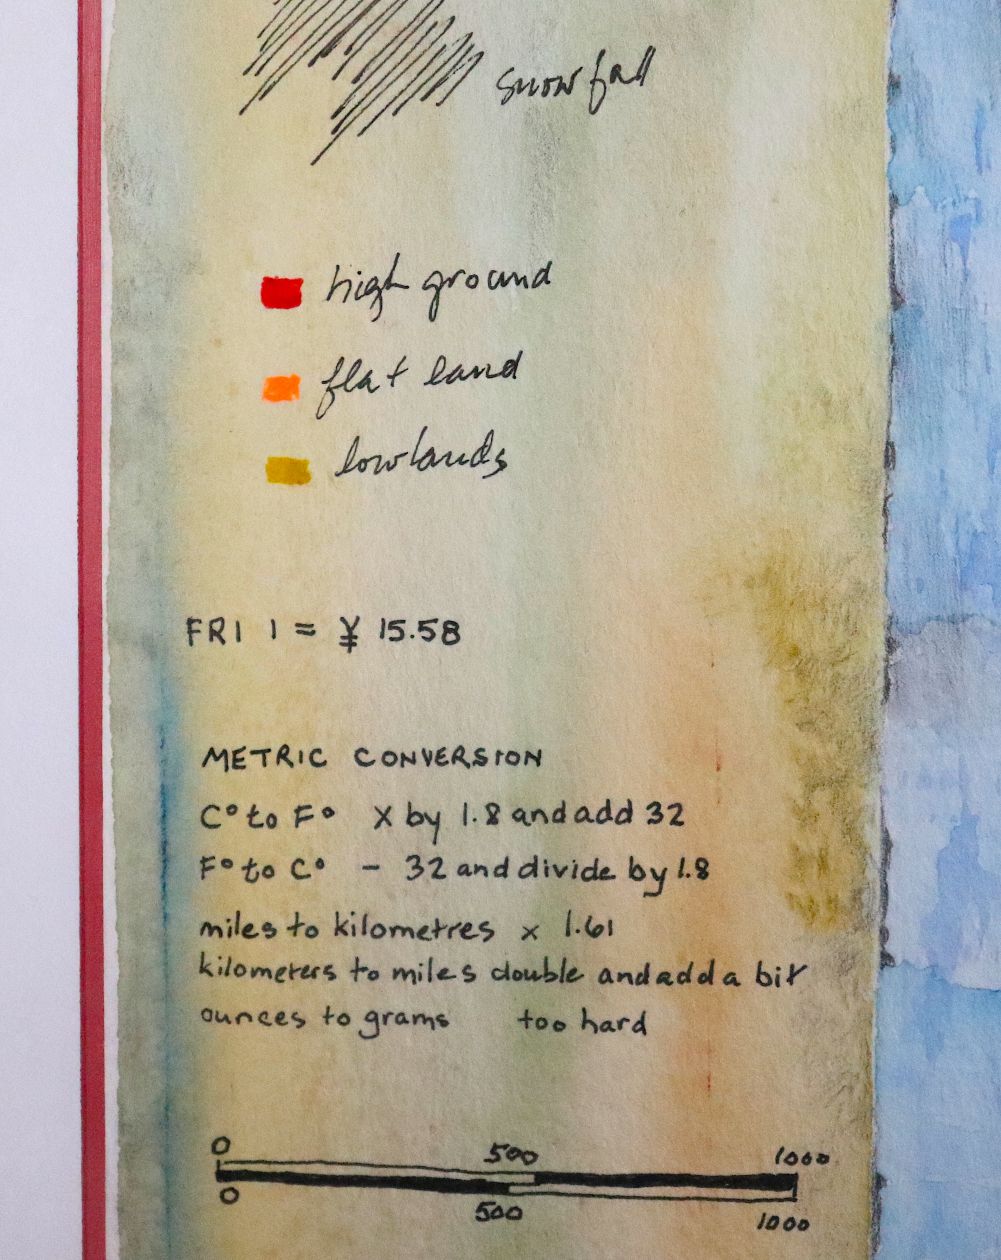 snowfall
high ground
flat land
lowlands
FRI 1 = ¥ 15.58
METRIC CONVERSION
C° to F° X by 1.8 and add 32
F° to C° - 32 and divide by 1.8
miles to kilometres x 1.61
kilometers to miles double and add a bit
ounces to grams too hard
0 500 1000
0 500 1000